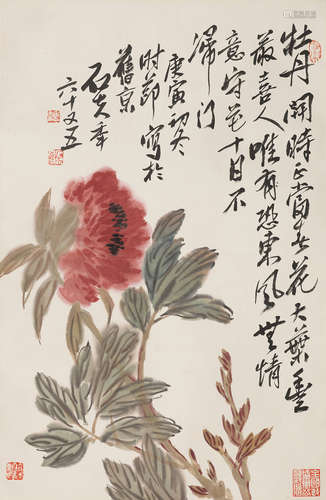 牡丹開時正當春花大葉豐
最喜人唯有恐東風無情
意守花十日不
歸門
庚寅初冬
時節寫於
舊京
石夫年
六十又五